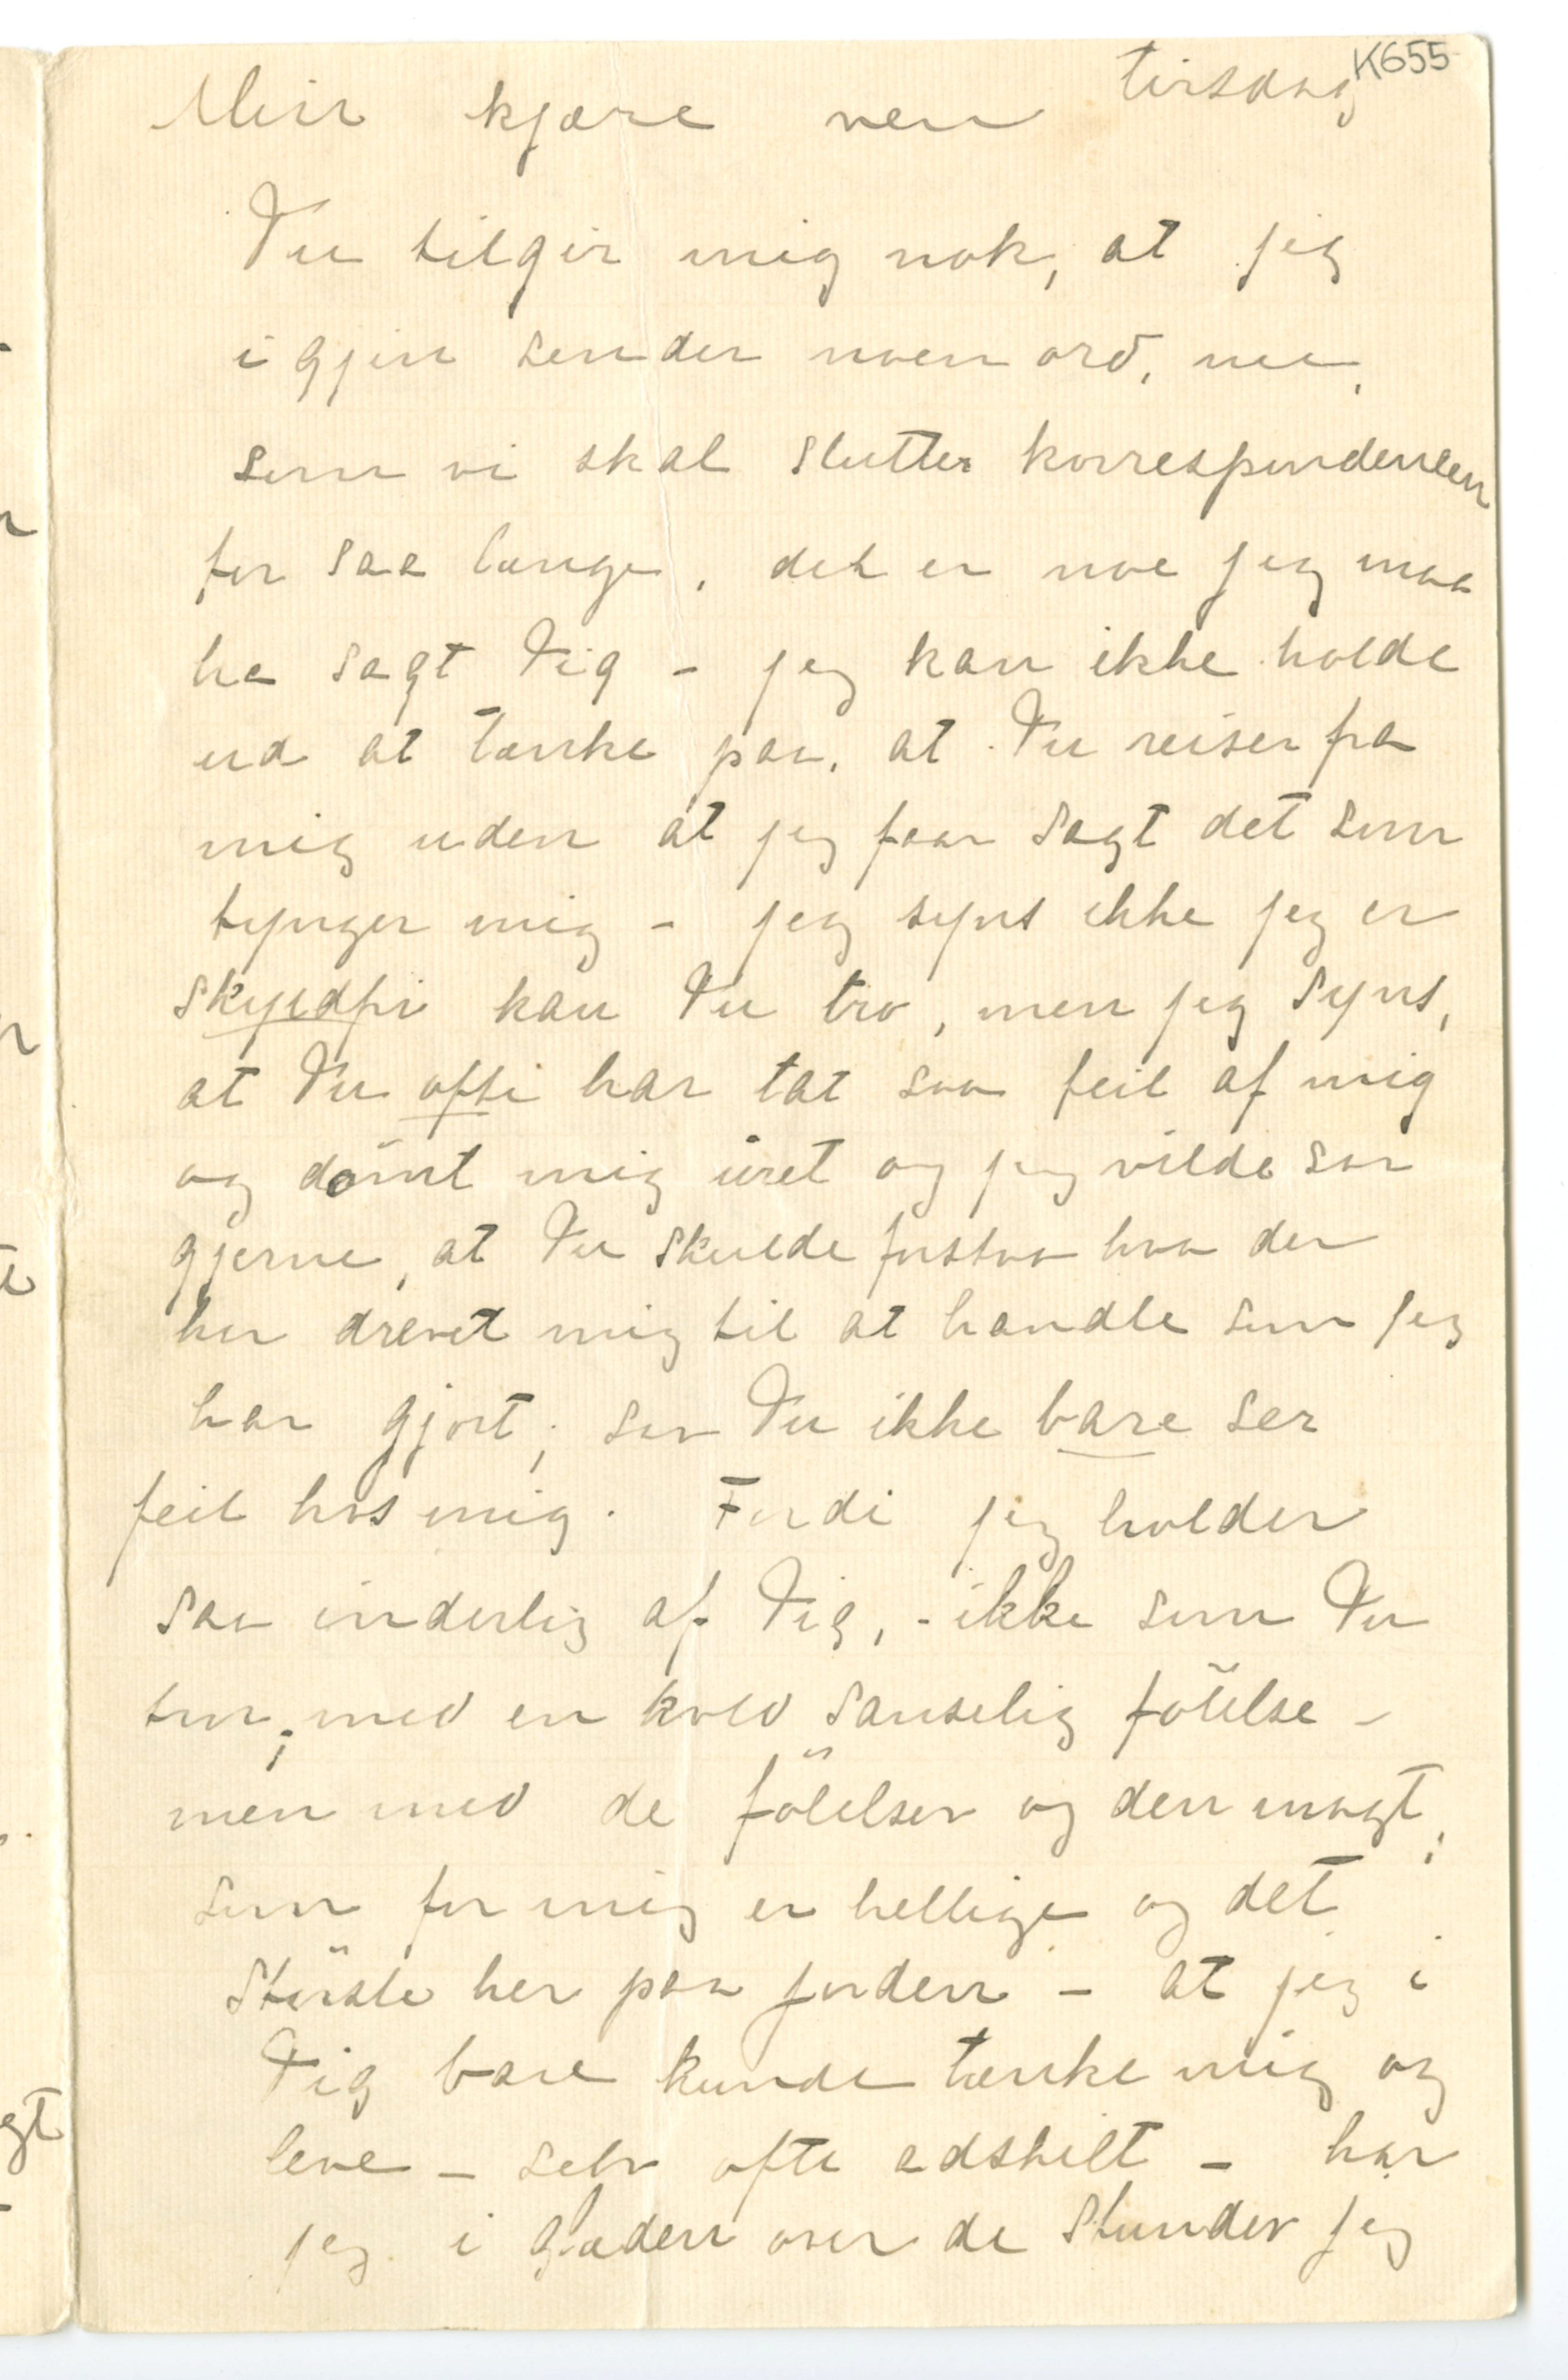 K655
tirsdag
Min kjære ven
Du tilgir mig nok, at jeg
igjen sender noen ord, nu,
som vi skal slutte korrespondencen
for saa længe, det er noe jeg maa
ha sagt Dig - jeg kan ikke holde
ud at tænke paa, at Du reiser fra
mig uden at jeg faar sagt det som
tynger mig - jeg syns ikke jeg er
skyldfri kan Du tro, men jeg syns,
at Du ofte har tat saa feil af mig
og dømt mig uret og jeg vilde saa
gjerne, at Du skulde forstaa hva der
har drevet mig til at handle som jeg
har gjort; saa Du ikke bare ser
feil hos mig. Fordi jeg holder
saa inderlig af Dig, - ikke som Du
tror; med en kold sanselig følelse -
men med de følelser og den magt,
som for mig er hellige og det
største her paa jorden - at jeg i
Dig bare kunde tænke mig og
leve - selv ofte adskilt - har
jeg i glæden over de stunder jeg